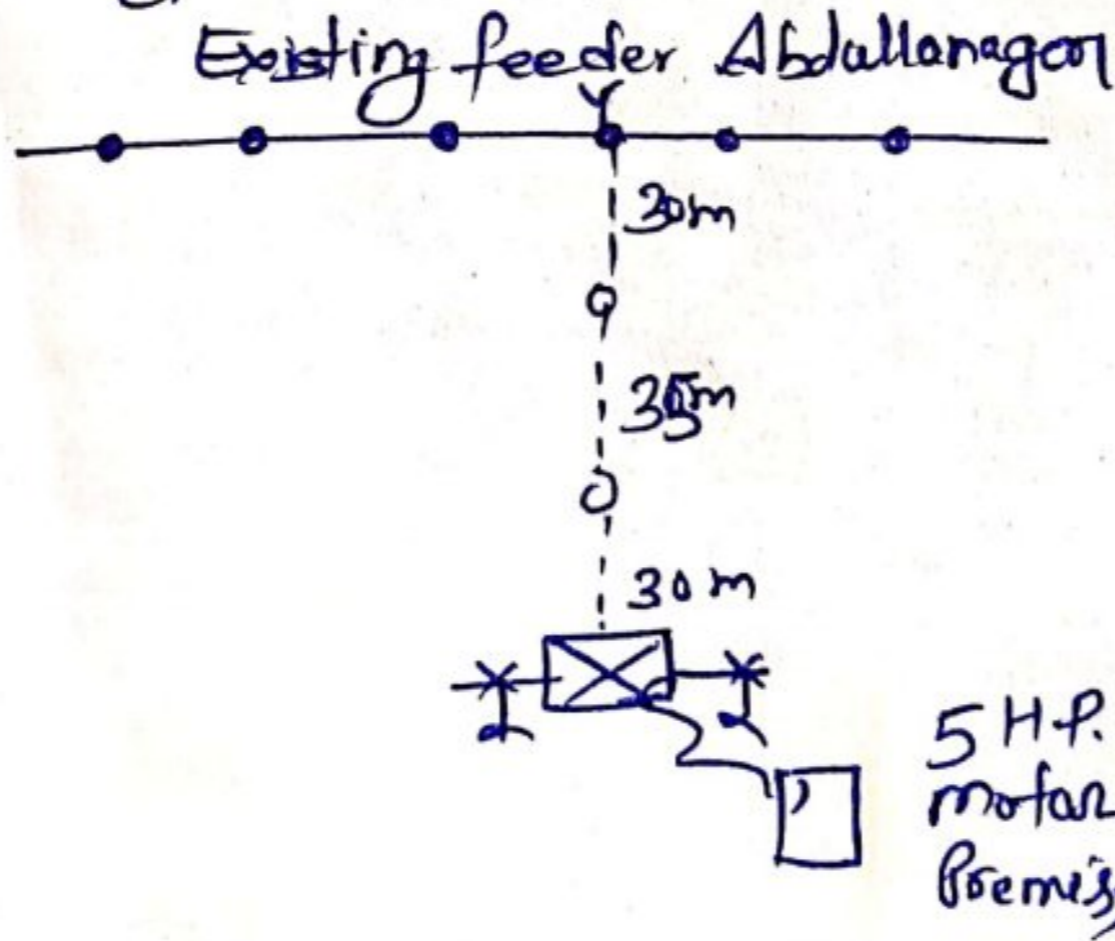 Existing feeder Abdullanagar
30m
35m
30m
5 H.P.
motar
Premis